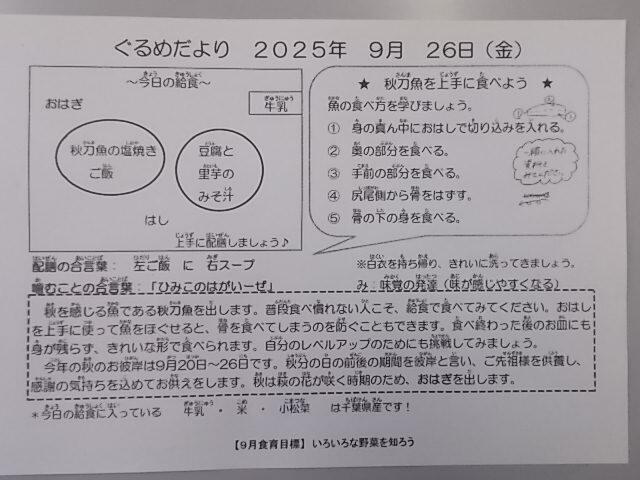 ぐるめだより　2025年　9月　26日（金）
～今日の給食～
おはぎ
牛乳
秋刀魚の塩焼き
ご飯
豆腐と
里芋の
みそ汁
はし
上手に配膳しましょう♪
★　秋刀魚を上手に食べよう　★
魚の食べ方を学びましょう。
①　身の真ん中におはしで切り込みを入れる。
②　奥の部分を食べる。
③　手前の部分を食べる。
④　尻尾側から骨をはずす。
⑤　骨の下の身を食べる。
配膳の合言葉：　左ご飯　に　右スープ
※白衣を持ち帰り、きれいに洗ってきましょう。
噛むことの合言葉：「ひみこのはがいーぜ」
み：味覚の発達（味が感じやすくなる）
秋を感じる魚である秋刀魚を出します。普段食べ慣れない人こそ、給食で食べてみてください。おはし
を上手に使って魚をほぐせると、骨を食べてしまうのを防ぐこともできます。食べ終わった後のお皿にも
身が残らず、きれいな形で食べられます。自分のレベルアップのためにも挑戦してみましょう。
今年の秋のお彼岸は9月20日～26日です。秋分の日の前後の期間を彼岸と言い、ご先祖様を供養し、
感謝の気持ちを込めてお供えをします。秋は萩の花が咲く時期のため、おはぎを出します。
＊今日の給食に入っている　牛乳・米・小松菜　は千葉県産です！
【9月食育目標】いろいろな野菜を知ろう